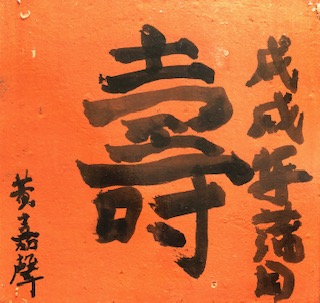 戊戌年日
壽
黃嘉聲